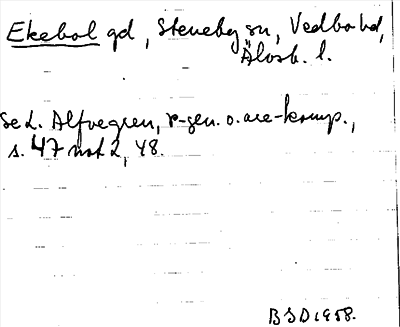 Ekebol gd, Steneby sn, Vedbo hd,
Älvsb. l.
se L. Alfvegren, r-gen. o. are-komp.,
s. 47 not 2, 48.
BSD 1958.